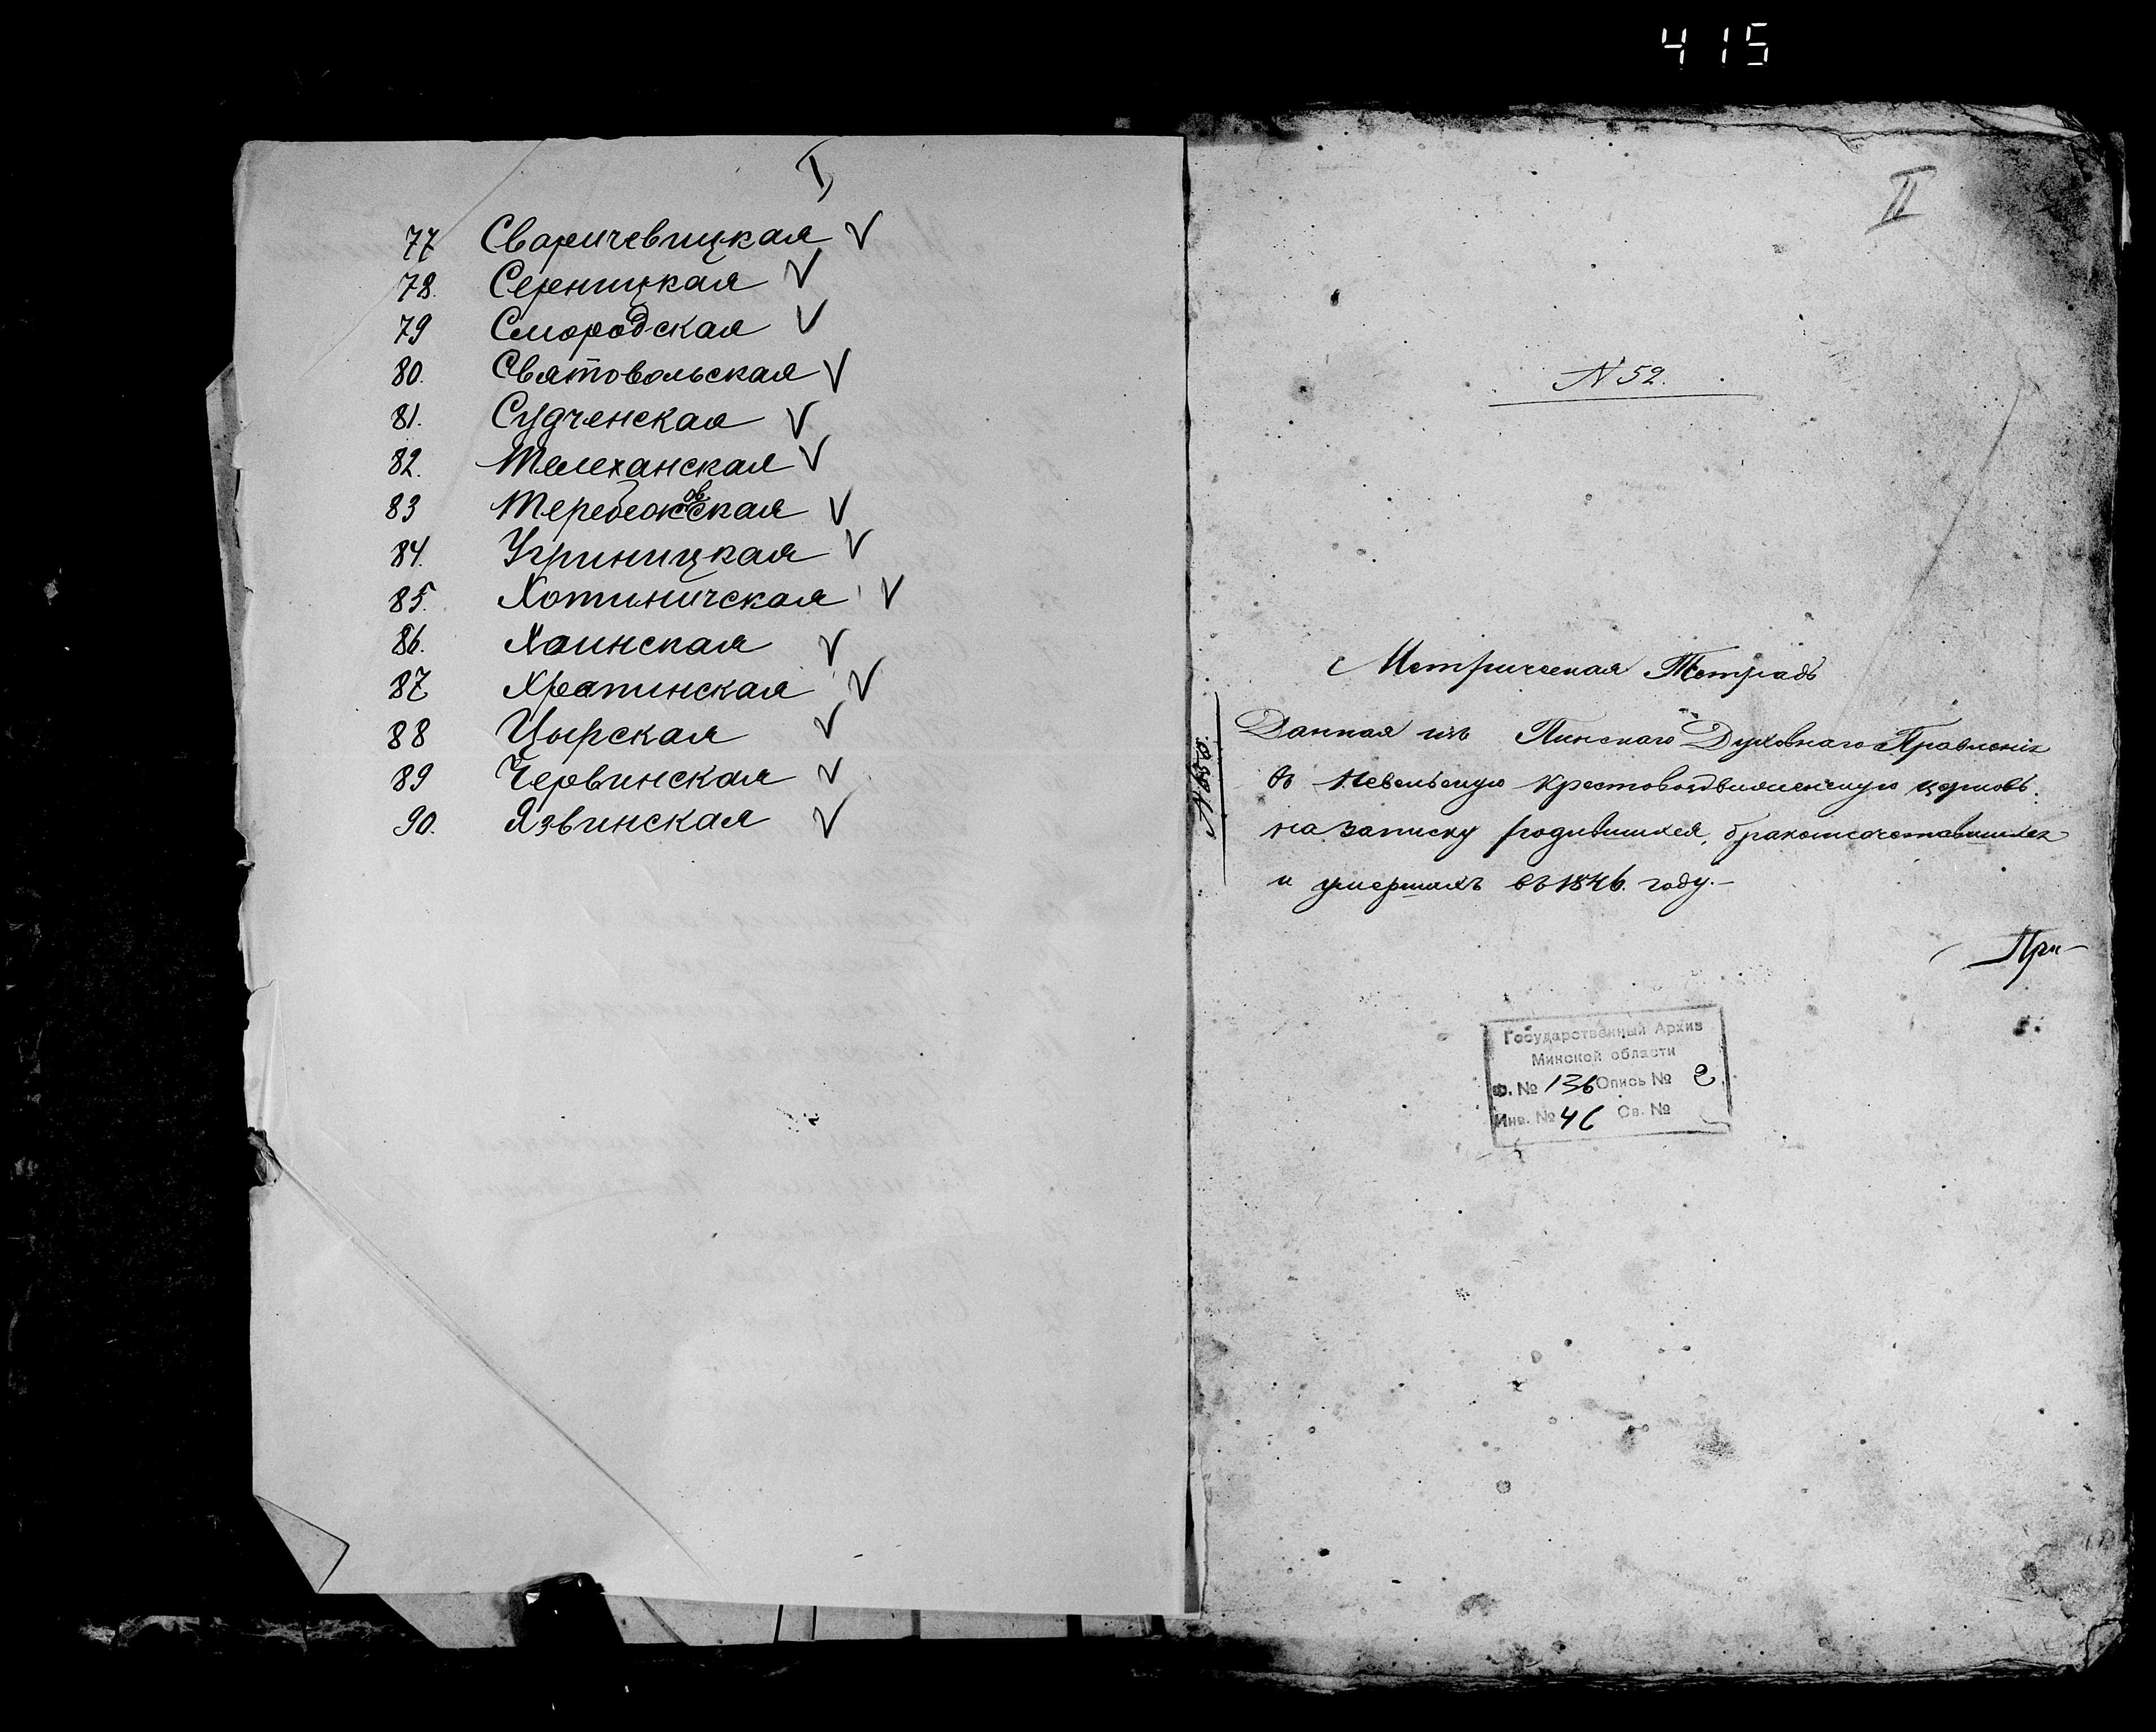 415
I
77 Сваричевицкая V
78. Серницкая V
79 Смородская V
80. Святовольская V
81. Судченская V
82. Телеханская V
83 Теребежовская V
84. Угриницкая V
85. Хотыничская V
86. Хоинская V
87 Храпинская V
88 Цырская V
89 Червинская V
90. Язвинская V
II
N 52.
Метрическая Тетрадь
Данная изъ Пинскаго Духовнаго Правленія
въ Невельскую Крестовоздвиженскую церковь.
на записку родившихся, бракомсочетавшихся
и умершихъ въ 1846. году.-
При-
Государственный Архив
Минской области
Ф. № 136 Опись № 2
Инв. № 46 Св. №